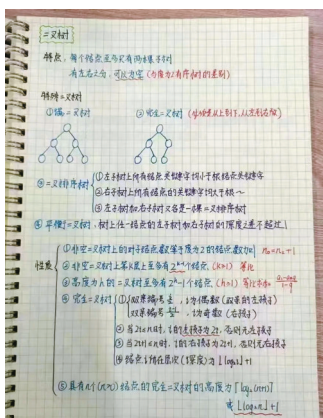 二叉树
特点: 每个结点至多只有两棵子树
有左右之分, 可以为空 (与度为2有序树的差别)
特殊二叉树
①满二叉树 ②完全二叉树 (从上到下, 从左到右)
③二叉排序树 ①左子树上所有结点关键字均小于根结点关键字
②右子树上所有结点的关键字均大于根~
③左子树和右子树又各是一棵二叉排序树
④平衡二叉树, 树上任一结点的左子树和右子树的深度之差不超过1
性质 ①非空二叉树上的叶子结点数等于度为2的结点数加1 n₀=n₂+1
②非空二叉树上第K层上至多有2^(k-1)个结点 (k≥1) 等比
③高度为h的二叉树至多有2^h-1个结点 (h≥1) 等比求和
④完全二叉树 ① i为偶数 (双亲的左孩子)
i为奇数 (右孩子)
②当2i≤n时, i的左孩子为2i, 否则无左孩子
③当2i+1≤n时, i的右孩子为2i+1, 否则无右孩子
④结点i所在层次 (深度) 为⌊log₂i⌋+1
⑤具有n个(n>0)结点的完全二叉树的高度为⌈log₂(n+1)⌉
或⌊log₂n⌋+1